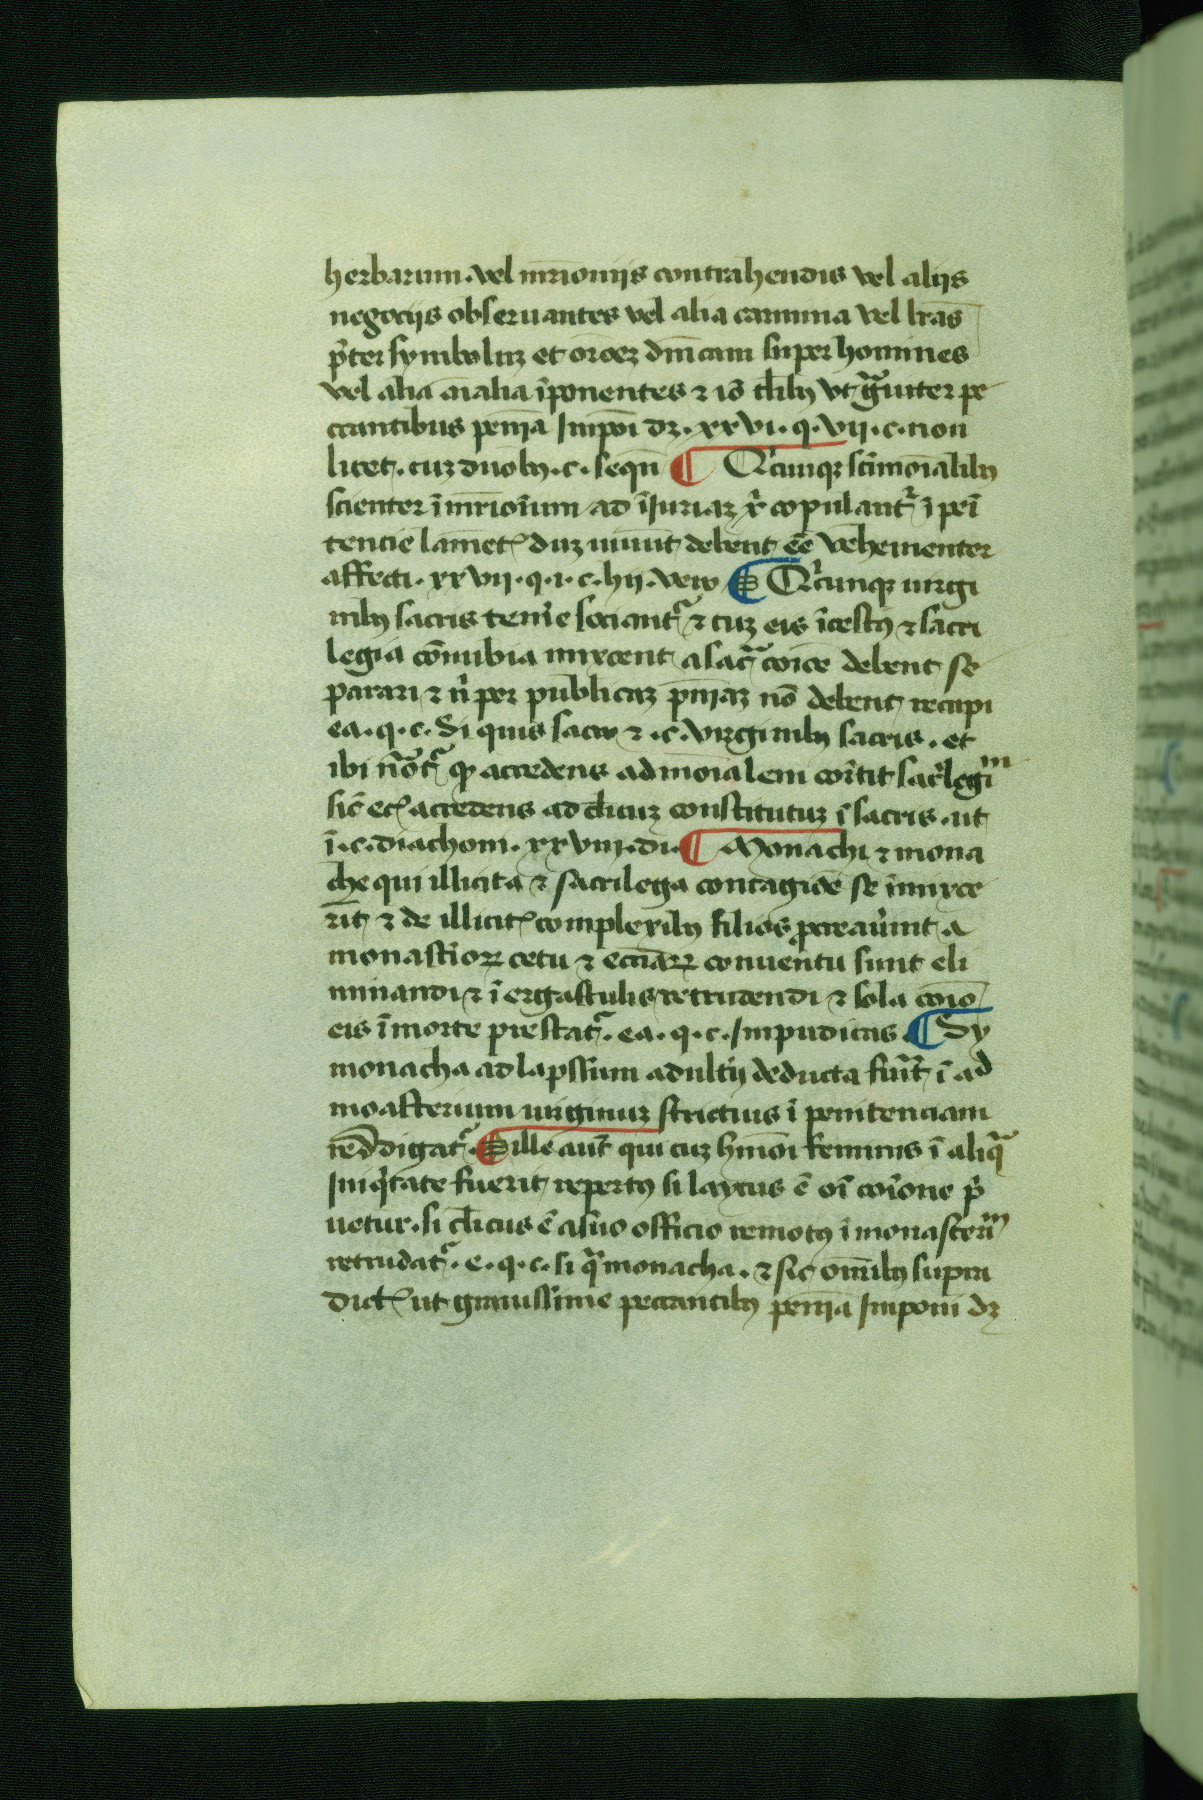 herbarum. vel mr̄imonijs contrahendis vel alijs
negocijs obseruantes vel alia carmina vel lr̄as
p̄ter symboluʒ et or̄oeʒ dn̄icam super homines
vel alia aīalia īponentes ⁊ iō tl̄ibꝰ vt gͣuiter pe
ccantibus penīa Impōi dʒ. xxvi. q. vii. c. non
licet. cuʒ duobꝰ. c. sequn̄ ¶ Qͥcunqʒ sc̄imōialibꝰ
scienter ī mr̄ioīum ad īiuriaʒ xͥ copulantͬ ī peī
tencie lam̄etꝭ duʒ uiuūt debent eē vehementer
affecti. xxvii. q. i. c. hii. vero ¶ Qͥcunqʒ uirgi
nibꝰ sacris tem̄e sociantͬ ⁊ cuʒ eis īcestꝰ ⁊ sacri
legia cōnubia mixcent a sacͣ cōice debent se
parari ⁊ nͥ per publicaʒ pn̄iaʒ nō debent recipi
ea. q. c. Si quis sacro ⁊ .c. virginibꝰ sacris. et
ibi nōtͬ ꝙ accedens ad moīalem cōm̄tit sacͥlegiᵐ
sic̄ ecꝭ accedens ad cl̄icuʒ constitutuʒ ī sacris. ut
ī. c. diachoni. xxviii. di. ¶ Monachi ⁊ mona
che qui illicita ⁊ sacrilega contagiōe se īmixce
rīt ⁊ de illicitꝭ complexibꝰ filios ꝓcreaūint a
monastīorꝝ cetu ⁊ eccīarꝝ conuentu sunt eli
minandi ⁊ ī ergastulis retrudendi ⁊ sola cōio
eis ī morte prestatͬ. ea. q. c. Impudicas ¶ Sy
monacha ad lapssum adultīj deducta fūit ī ad
moasterium uirginuʒ strictius ī penitenciam
reddigatͬ. ¶ Sille aut̄ qui cuʒ hm̄ōi feminis ī aliqͣ
Iniqͥtate fuerit repertꝰ si laycus ē oī cōione pͥ
uetur. si cl̄icus ē a suo officio remotꝰ ī monasteriᵐ
retrudatͬ. e. q. c. si qͣ monacha. ⁊ sic om̄ibꝰ supra
dictꝭ ut grauissime peccantibꝰ penīa Imponi dʒ